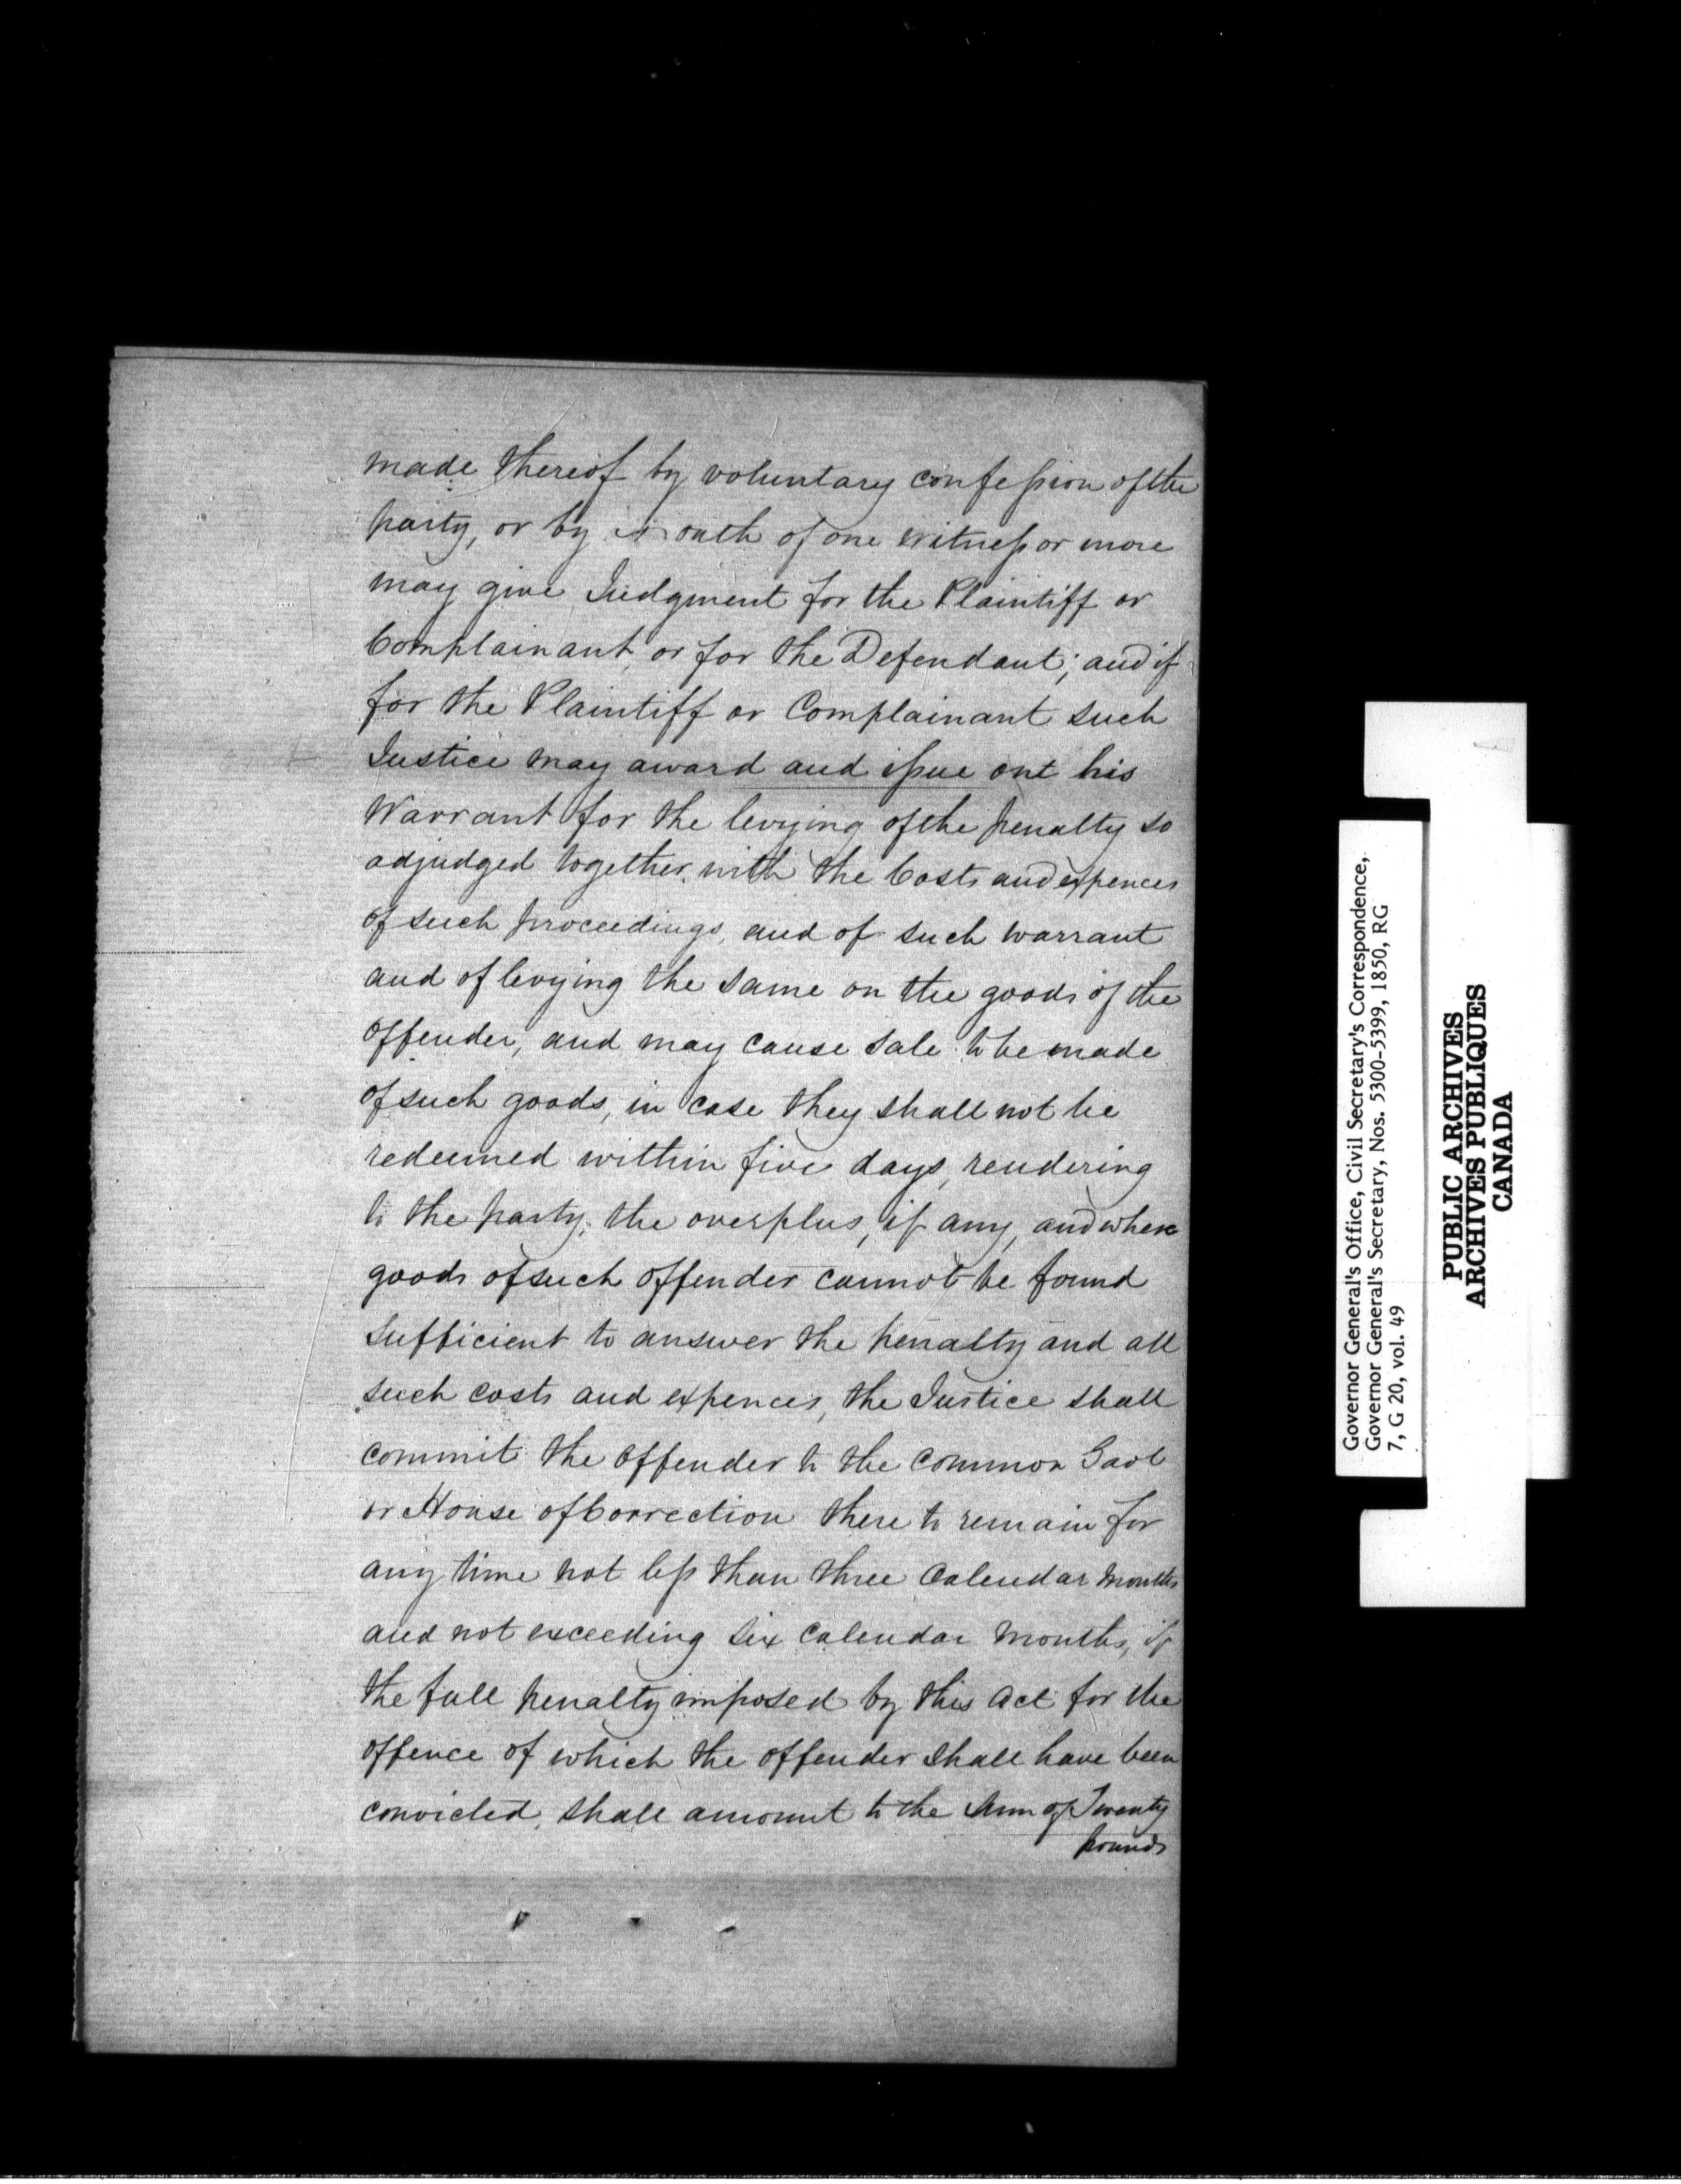 made thereof by voluntary confession of the
party, or by oath of one witness or more
may give Judgment for the Plaintiff or
Complainant, or for the Defendant; and if
for the Plaintiff or Complainant such
Justice may award and issue out his
Warrant for the levying of the penalty so
adjudged together with the Costs and expences
of such proceedings, and of such warrant
and of levying the same on the goods of the
offender, and may cause sale to be made
of such goods, in case they shall not be
redeemed within five days, rendering
to the party, the overplus, if any, and where
goods of such offender cannot be found
sufficient to answer the penalty and all
such costs and expences, the Justice shall
commit the offender to the common Gaol
or House of Correction there to remain for
any time not less than three Calendar Months
and not exceeding six Calendar Months, if
the full penalty imposed by this Act for the
offence of which the offender shall have been
convicted, shall amount to the Sum of Twenty
pounds
Governor General's Office, Civil Secretary's Correspondence,
Governor General's Secretary, Nos. 5300-5399, 1850, RG
7, G 20, vol. 49
PUBLIC ARCHIVES
ARCHIVES PUBLIQUES
CANADA